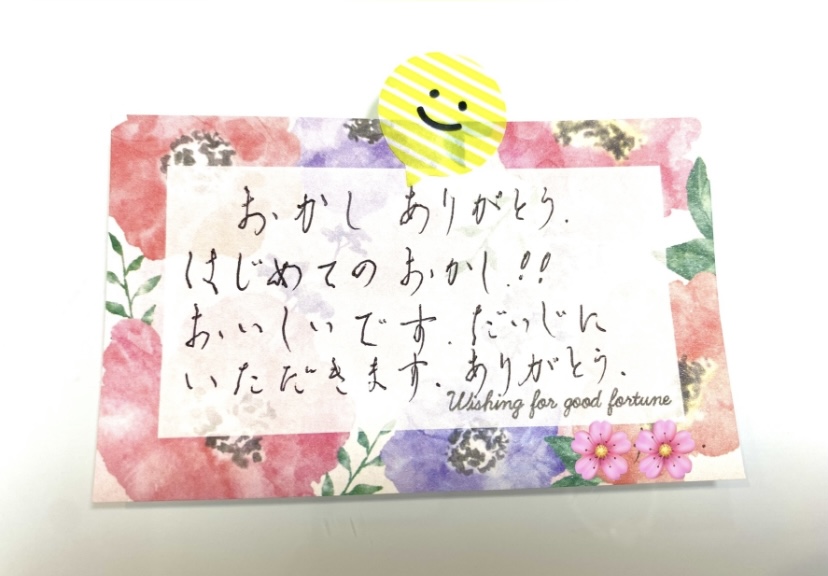 おかし ありがとう.
はじめての おかし!!
おいしいです. だいじに
いただきます. ありがとう.
Wishing for good fortune